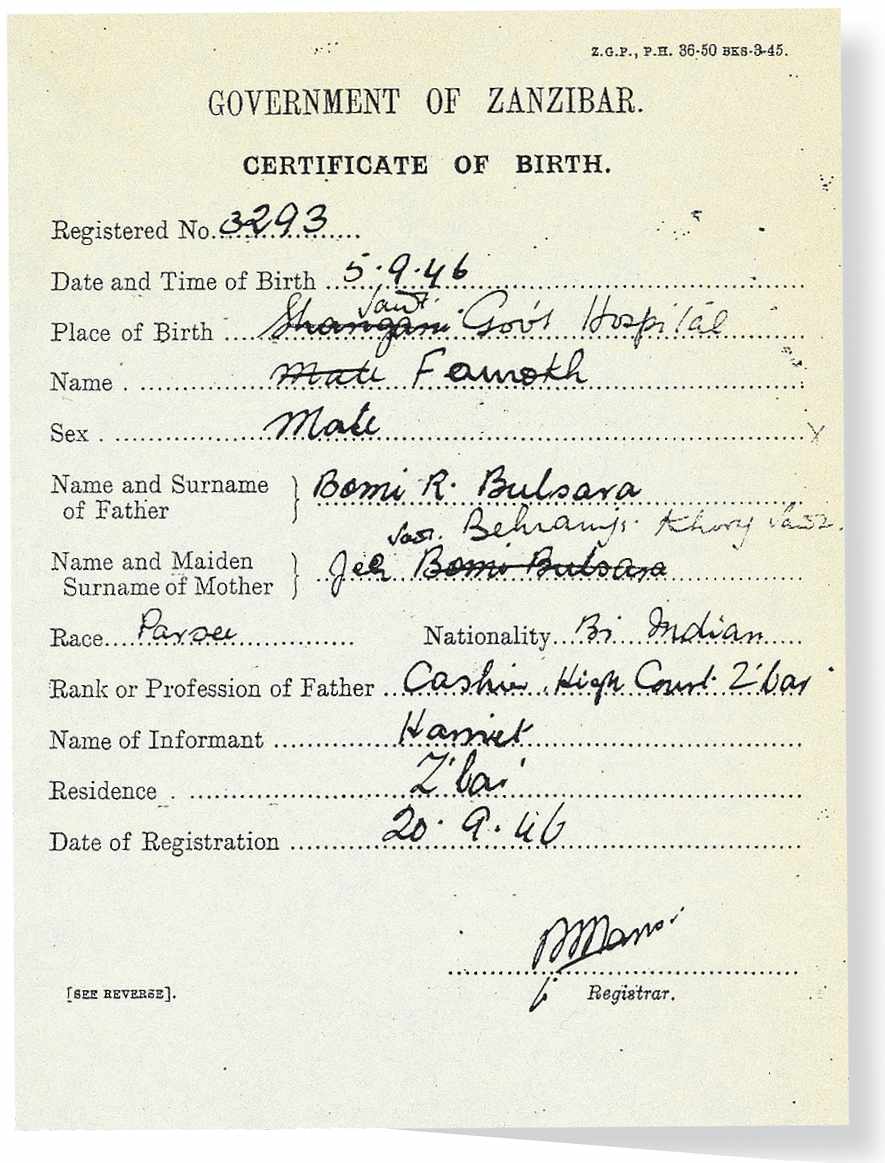 Z.G.P., P.H. 36-50 BKS-3-45.
GOVERNMENT OF ZANZIBAR.
CERTIFICATE OF BIRTH.
Registered No. 3293
Date and Time of Birth 5.9.46
Place of Birth Shangani Gov't Hospital
Name Male Farrokh
Sex Male
Name and Surname of Father Bomi R. Bulsara
Behramji Khory
Name and Maiden Surname of Mother Jer Bomi Bulsara
Race Parsee Nationality Bi. Indian
Rank or Profession of Father Cashier High Court Z'bar
Name of Informant
Residence Z'bar
Date of Registration 20.9.46
[SEE REVERSE].
Registrar.